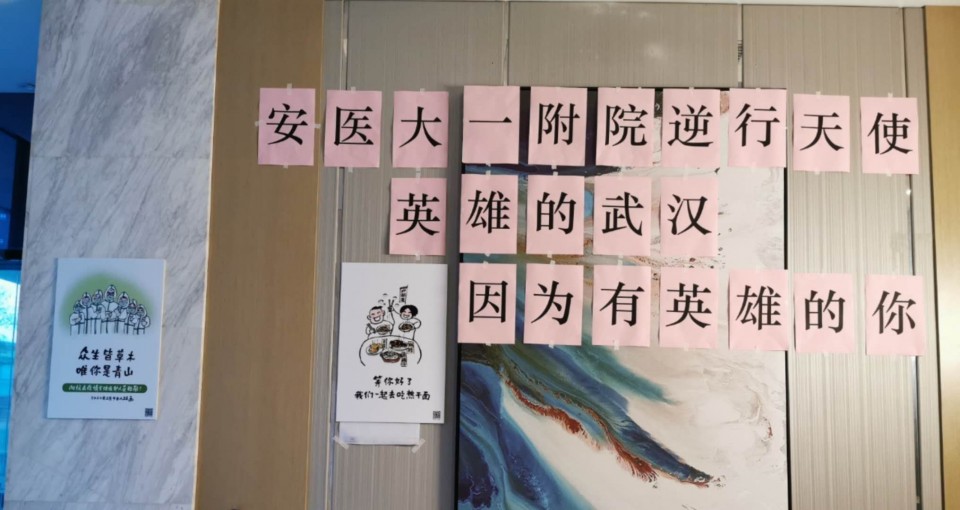 安医大一附院逆行天使
英雄的武汉
因为有英雄的你
众生皆草木
唯你是青山
等你好了
我们一起去吃热干面